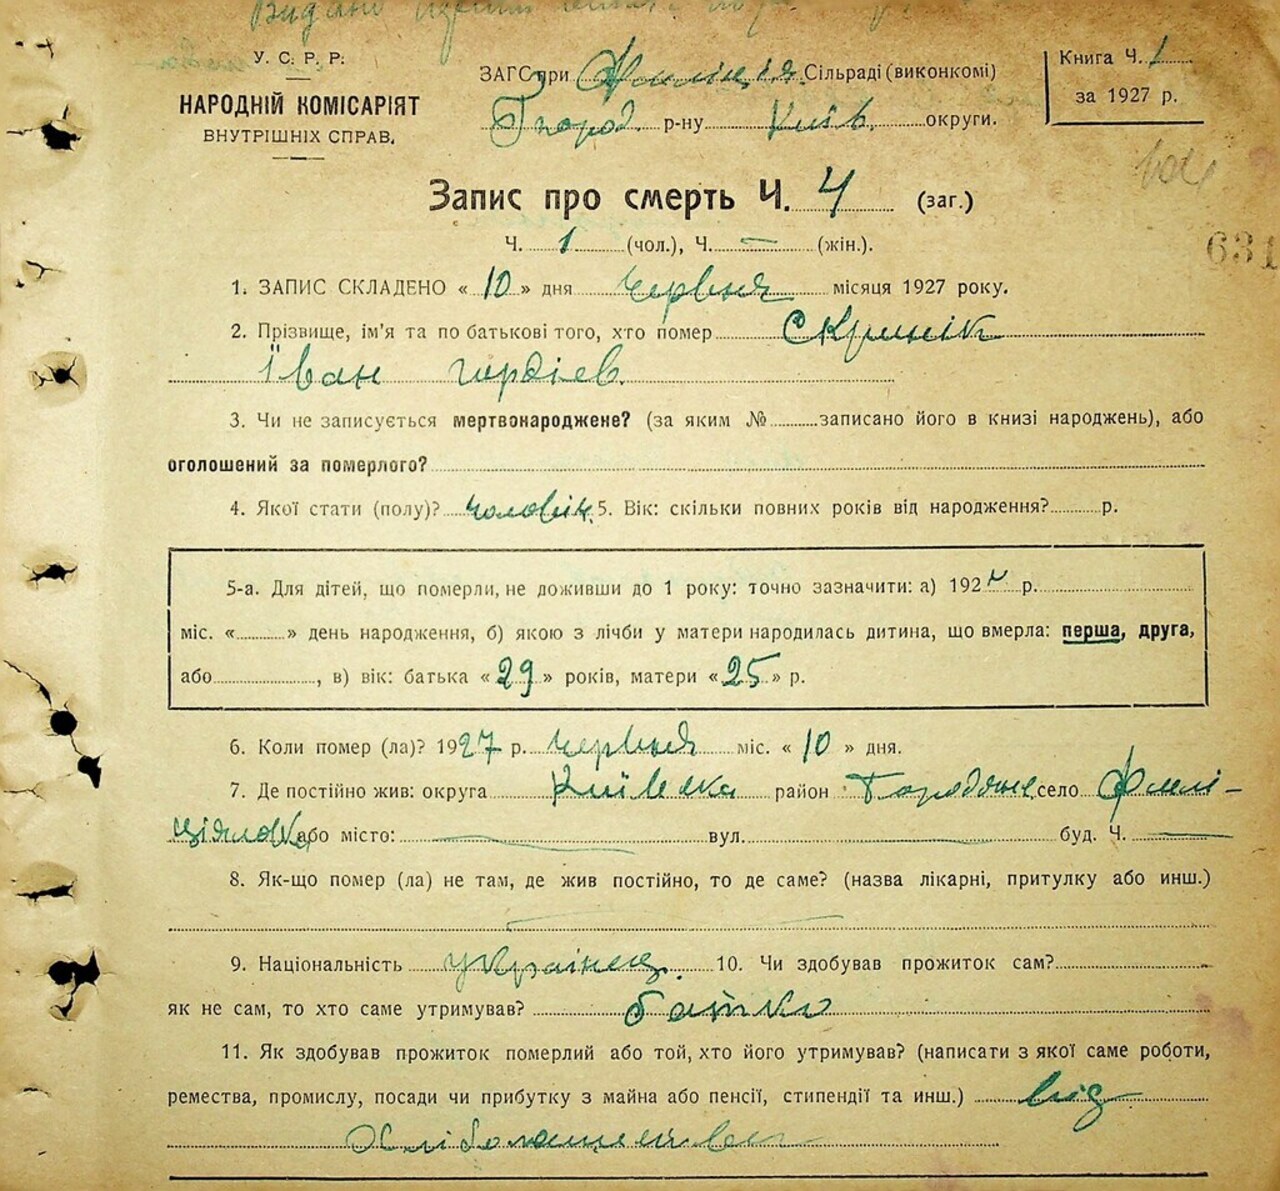 Видано
У. С. Р. Р.
НАРОДНІЙ КОМІСАРІЯТ
ВНУТРІШНІХ СПРАВ.
ЗАГС при Фміліція. Сільраді (виконкомі)
Город. р-ну Київ. округи.
Книга Ч. 1
за 1927 р.
631
Запис про смерть Ч. 4 (заг.)
Ч. 1 (чол.), Ч. — (жін.).
1. ЗАПИС СКЛАДЕНО « 10 » дня червня місяця 1927 року.
2. Прізвище, ім'я та по батькові того, хто помер Скринік
Іван Гордіев.
3. Чи не записується мертвонароджене? (за яким № записано його в книзі народжень), або
оголошений за померлого?
4. Якої стати (полу)? чоловік. 5. Вік: скільки повних років від народження? р.
5-а. Для дітей, що померли, не доживши до 1 року: точно зазначити: а) 192 р.
міс. « » день народження, б) якою з лічби у матери народилась дитина, що вмерла: перша, друга,
або , в) вік: батька « 29 » років, матери « 25 » р.
6. Коли помер (ла)? 1927 р. червня міс. « 10 » дня.
7. Де постійно жив: округа Київська район Городянс. село
або місто: — вул. буд. Ч. —
8. Як-що помер (ла) не там, де жив постійно, то де саме? (назва лікарні, притулку або инш.)
9. Національність українец. 10. Чи здобував прожиток сам?
як не сам, то хто саме утримував? батько
11. Як здобував прожиток померлий або той, хто його утримував? (написати з якої саме роботи,
ремества, промислу, посади чи прибутку з майна або пенсії, стипендії та инш.) від